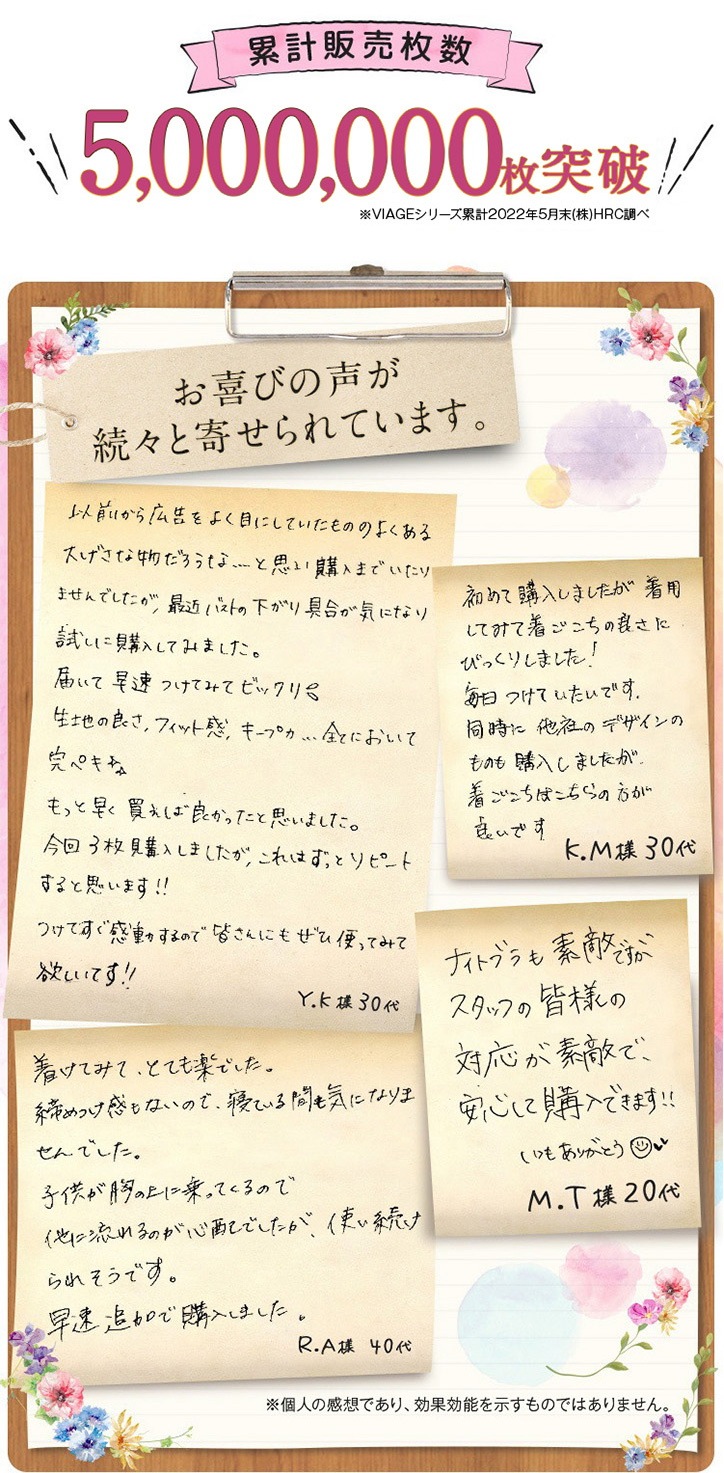 累計販売枚数
5,000,000枚突破
※VIAGEシリーズ累計2022年5月末(株)HRC調べ
お喜びの声が
続々と寄せられています。
以前から広告をよく目にしていたもののよくある
大げさな物だろうな……と思い購入までいたり
ませんでしたが、最近バストの下がり具合が気になり
試しに購入してみました。
届いて早速つけてみてビックリ
生地の良さ、フィット感、キープ力…全てにおいて
完ペキ
もっと早く買えば良かったと思いました。
今回3枚購入しましたが、これはずっとリピート
すると思います!!
つけてすぐ感動するので皆さんにもぜひ使ってみて
欲しいです!!
Y.K様30代
初めて購入しましたが着用
してみて着ごこちの良さに
びっくりしました!
毎日つけていたいです。
同時に他社のデザインの
ものも購入しましたが、
着ごこちはこちらの方が
良いです
K.M様30代
ナイトブラも素敵ですが
スタッフの皆様の
対応が素敵で、
安心して購入できます!!
いつもありがとう
M.T様20代
着けてみて、とても楽でした。
締めつけ感もないので、寝ている間も気になりま
せんでした。
子供が胸の上に乗ってくるので
他に流れるのが心配でしたが、使い続け
られそうです。
早速追加で購入しました。
R.A様 40代
※個人の感想であり、効果効能を示すものではありません。